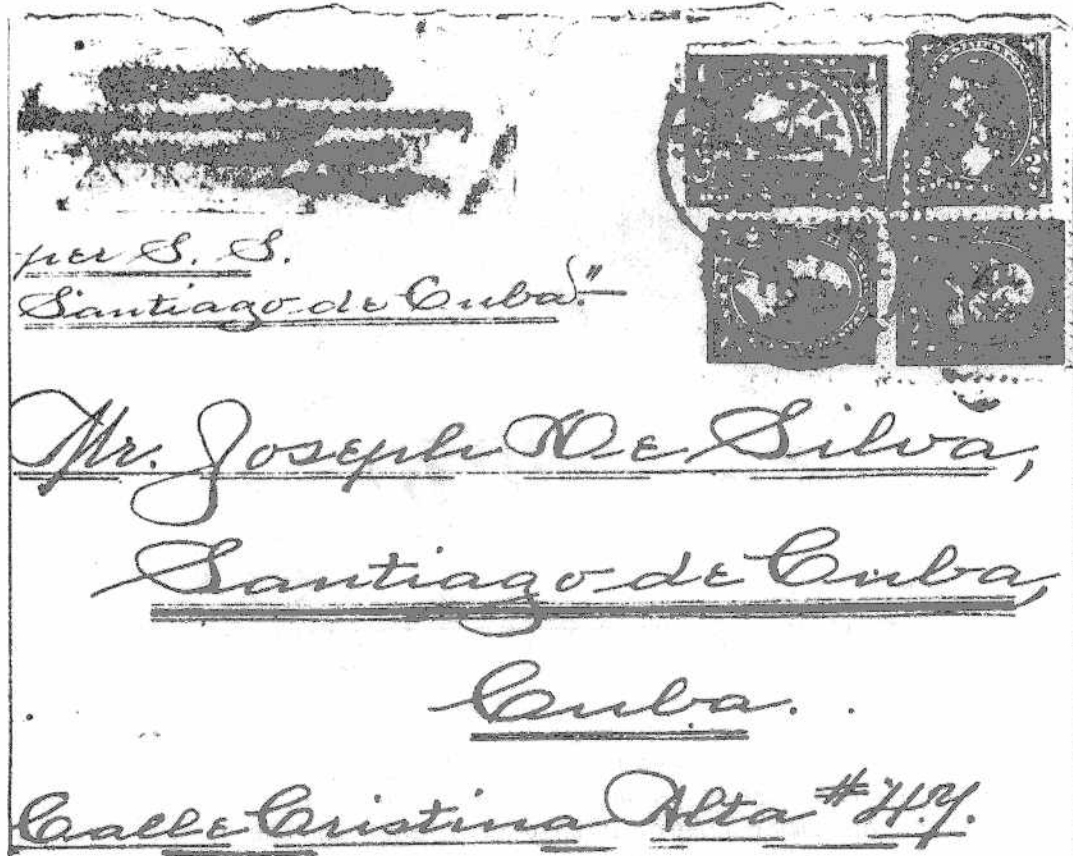 per S. S.
Santiago de Cuba."
Mr. Joseph De Silva,
Santiago de Cuba,
Cuba.
Calle Cristina Alta #